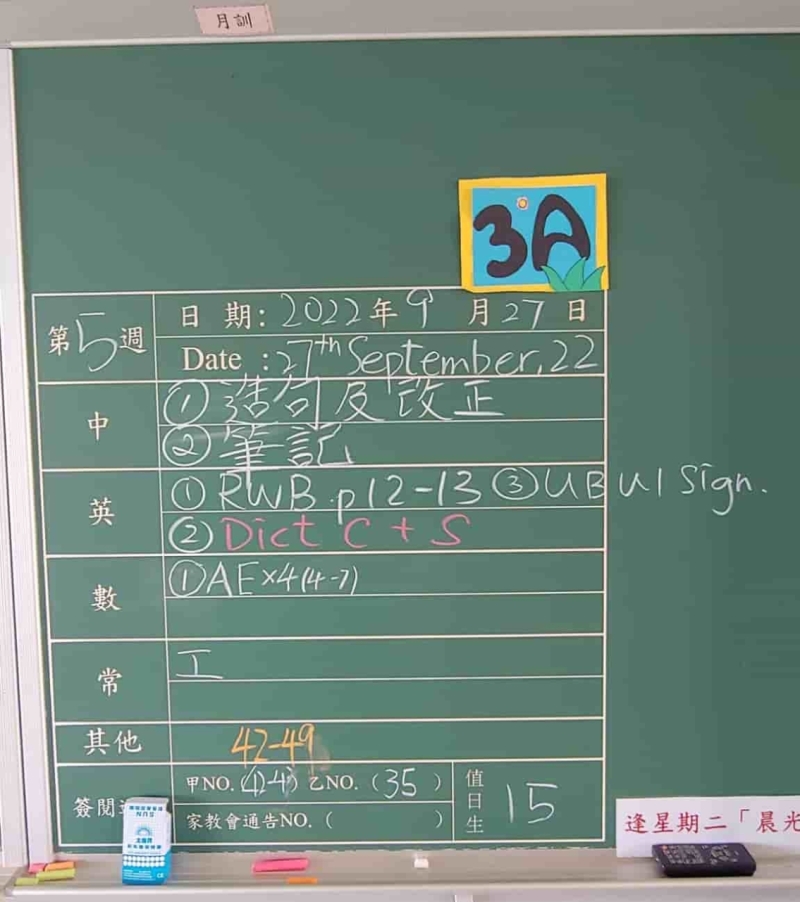 月訓
3A
第5週
日期: 2022年9月27日
Date : 27th September, 22
中
① 造句及改正
② 筆記
英
① RWB p12-13 ③ UB U1 Sign.
② Dict C + S
數
① AE×4(4-7)
常
工
其他
42-49
簽閱
甲NO. 乙NO. (35)
值日生 15
家教會通告NO. ( )
逢星期二「晨光